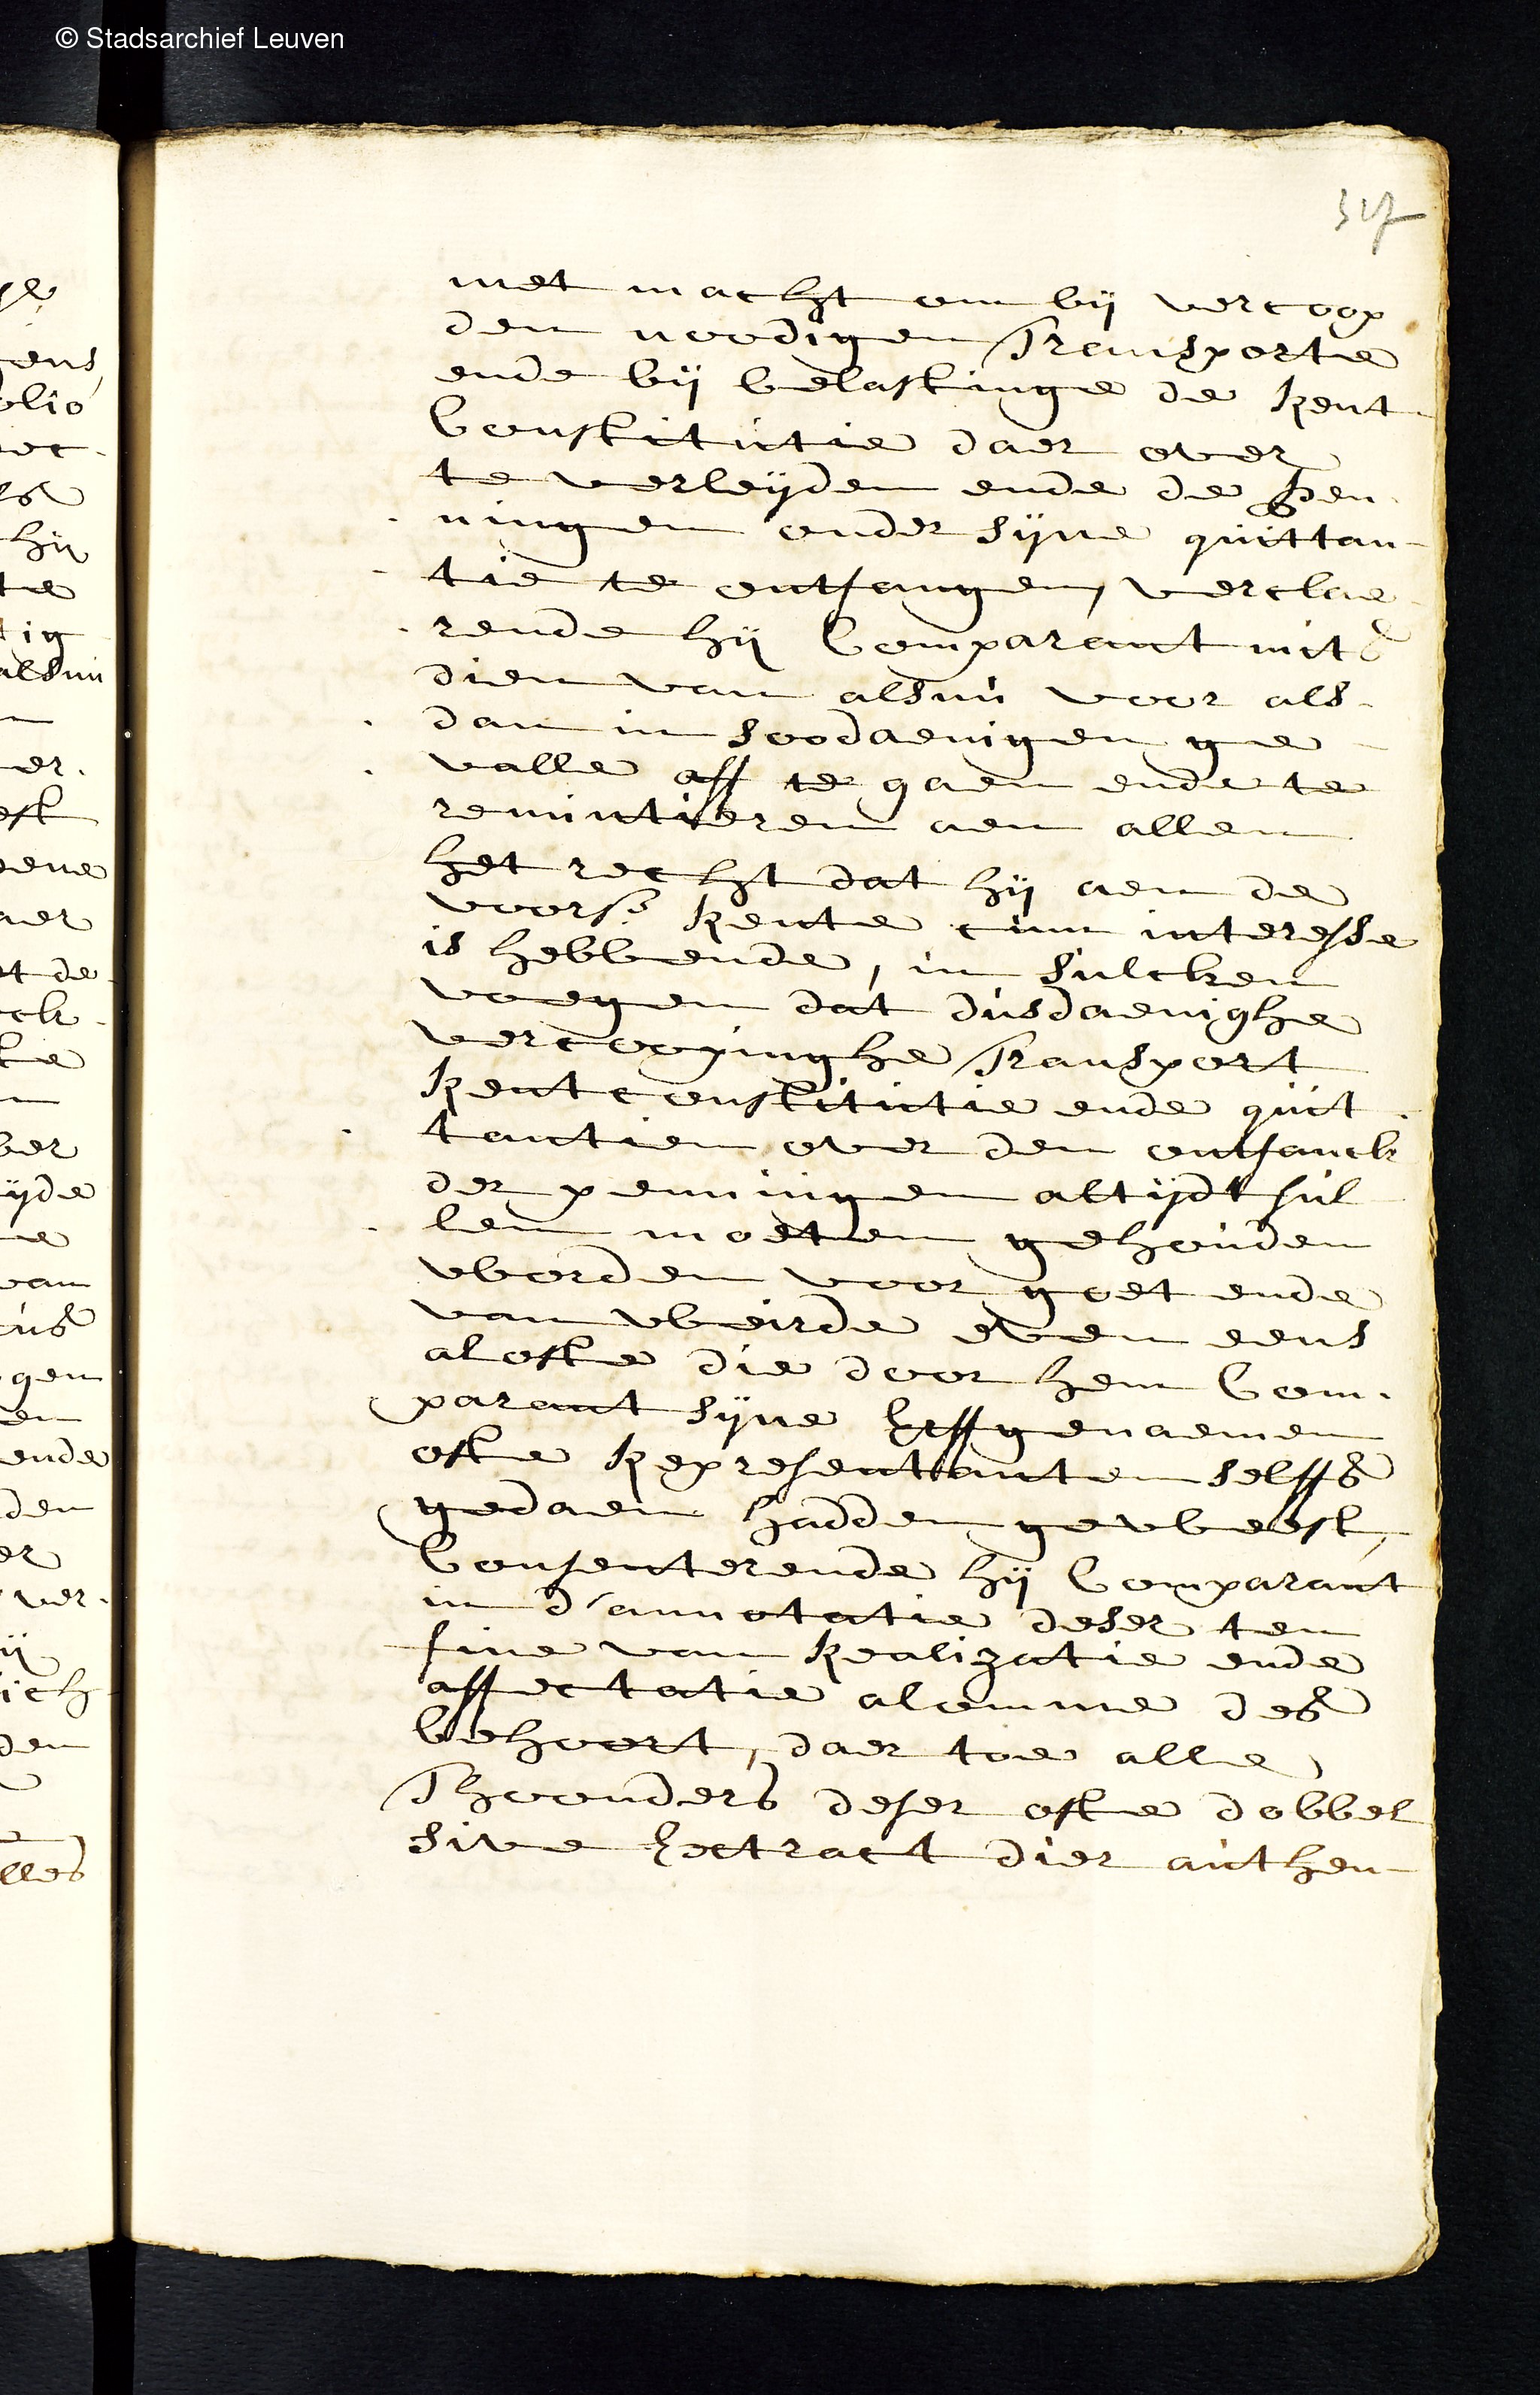 © Stadsarchief Leuven
met macht om bij vercoop
den noodigen Transporte
ende bij belastinge de Rent
Constitutie daer over
te verleijden ende de Pen
ningen onder sijne quittan
tie te ontfangen, verclae
rende hij Comparant mits
dien van alsnu voor als
dan in soodaenigen ge
valle aff te gaen ende te
renuntieren aen allen
het recht dat hij aen de
voorsz Rente cum interesse
is hebbende, in sulcken
voegen dat dusdaenighe
vercoopinghe Transport
Rentconstitutie ende quit
tantien over den ontfanck
der penningen altijdt sul
len moeten gehouden
worden voor goet ende
van weirde even eens
al ofte die door hem Com
parant sijne Erffgenaemen
ofte Representanten selffs
gedaen hadden geweest,
Consenterende hij Comparant
in d'annotatie deser ten
fine van Realizatie ende
affectatie alomme des
behoort, daer toe alle
Thoonders deser ofte dobbel
sive Extract dier authen